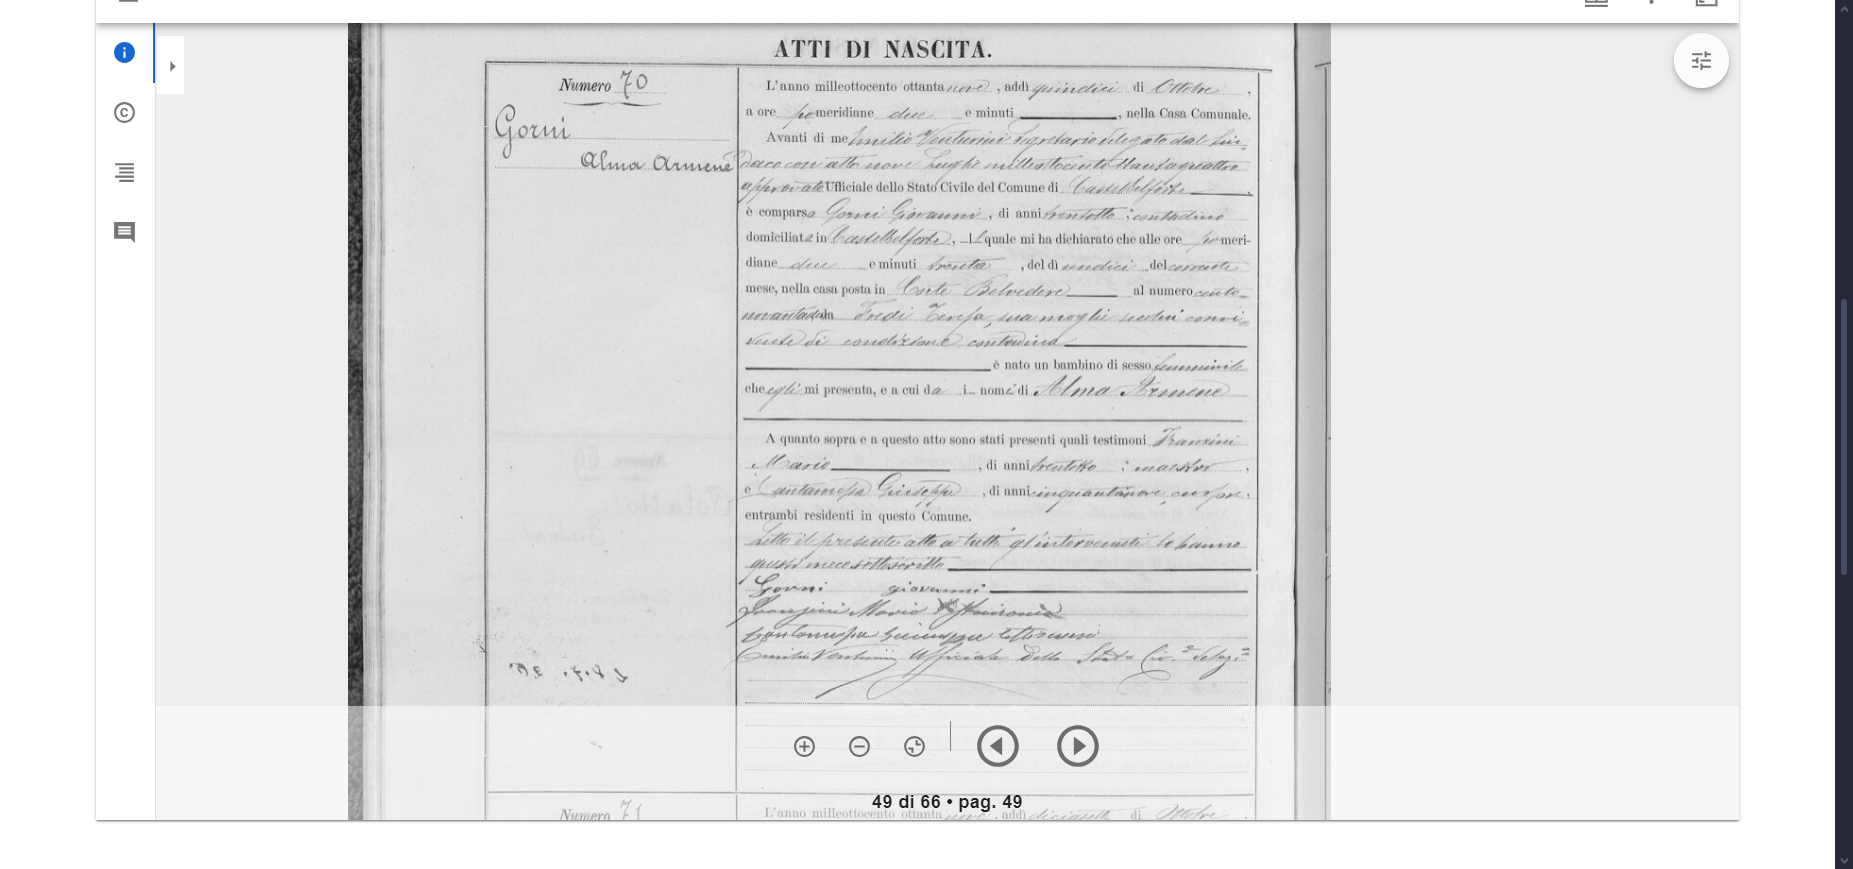 ATTI DI NASCITA.
Numero 70
Gorni
Alma Armene
L'anno milleottocento ottantanove, addì quindici di Ottobre,
a ore pomeridiane due e minuti , nella Casa Comunale.
Avanti di me Emilio Venturini Segretario delegato dal Sin=
daco con atto nove Luglio milleottocentottantaquattro
approvato Ufficiale dello Stato Civile del Comune di Castelbelforte,
è comparso Gorni Giovanni, di anni trentotto; contadino
domiciliato in Castelbelforte, il quale mi ha dichiarato che alle ore pomeri-
diane due e minuti trenta, del dì undici del corrente
mese, nella casa posta in Corte Belvedere al numero cento=
da Fredi Teresa, sua moglie seco convi=
vente di condizione contadina
è nato un bambino di sesso femminile
che egli mi presenta, e a cui da i nomi di Alma Armene
A quanto sopra e a questo atto sono stati presenti quali testimoni Franzini
Mario, di anni trentotto; maestro,
e Cantamessa Giuseppe, di anni cinquantanove,
entrambi residenti in questo Comune.
Letto il presente atto a tutti gl'intervenuti lo hanno
questi meco sottoscritto
Gorni giovanni
Franzini Mario testimonio
Cantamessa Giuseppe
Emilio Venturini Ufficiale dello Stato Civ.e Deleg.o
49 di 66 • pag. 49
Numero 71
L'anno milleottocento ottantanove, addì diciasette di Ottobre,